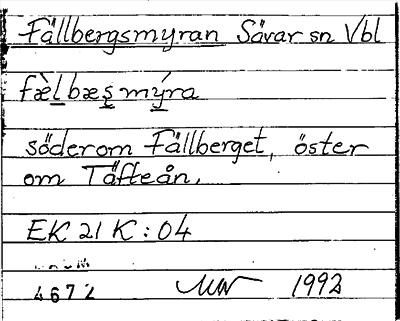 Fällbergsmyran Sävar sn Vbl
fæ̀l̲bæs̲mý̲ra
söderom Fällberget, öster
om Täfteån.
EK 21 K : 04
4672 1992